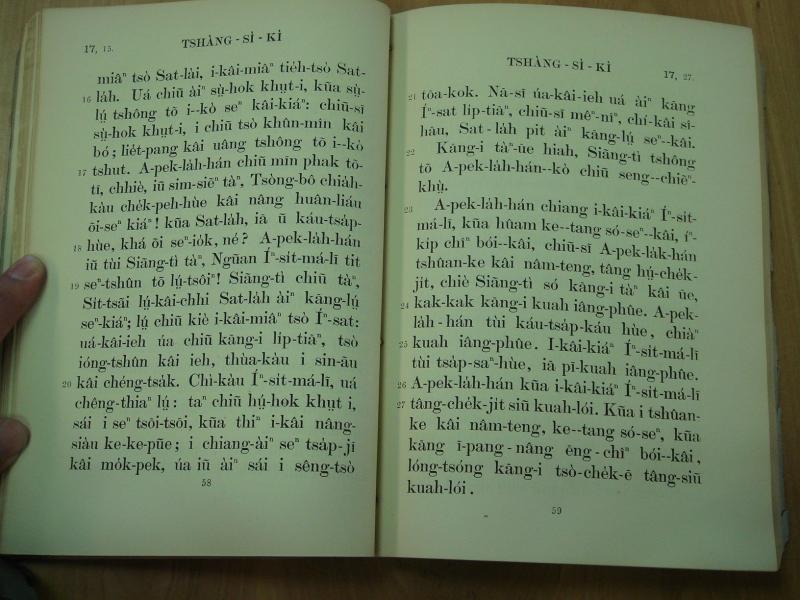 17, 15.
TSHÀNG - SÌ - KÌ
miâⁿ tsò Sat-lài, i-kâi-miâⁿ tie̍h-tsò Sat-
16 la̍h. Uá chiū àiⁿ sṳ̀-hok khṳt-i, kūa sṳ̀-
lṳ́ tshông tō i--kò seⁿ kâi-kiáⁿ: chiū-sĭ
sṳ̀-hok khṳt-i, i chiū tsò khûn-mîn kâi
bó; lie̍t-pang kâi uâng tshông tō i--kò
17 tshut. A-pek-la̍h-hán chiū mīn phak tō-
tī, chhiè, iŭ sim-siēⁿ tàⁿ, Tsòng-bô chia̍h-
kàu che̍k-peh-hùe kâi nâng huân-liáu
ōi-seⁿ kiáⁿ! kūa Sat-la̍h, iā ŭ káu-tsa̍p-
18 hùe, khá ōi seⁿ-io̍k, né? A-pek-la̍h-hán
iŭ tùi Siāng-tì tàⁿ, Ngŭan Íⁿ-si̍t-má-lī tit
19 seⁿ-tshûn tō lṳ́-tsôiⁿ! Siāng-tì chiū tàⁿ,
Si̍t-tsāi lṳ́-kâi-chhi Sat-la̍h àiⁿ kāng-lṳ́
seⁿ-kiáⁿ; lṳ́ chiū kiè i-kâi-miâⁿ tsò Íⁿ-sat:
uá-kâi-ieh úa chiū kāng-i li̍p-tiāⁿ, tsò
ióng-tshûn kâi ieh, thùa-kàu i sin-āu
20 kâi chéng-tsa̍k. Chì-kàu Íⁿ-si̍t-má-lī, uá
chêng-thiaⁿ lṳ́: taⁿ chiū hṳ́-hok khṳt i,
sái i seⁿ tsōi-tsōi, kūa thiⁿ i-kâi nâng-
siàu ke-ke-pūe; i chiang-àiⁿ seⁿ tsa̍p-jī
kâi mo̍k-pek, úa iŭ àiⁿ sái i sêng-tsò
58
TSHÀNG - SÌ - KÌ
17, 27.
21 tōa-kok. Nā-sĭ úa-kâi-ieh uá àiⁿ kāng
Íⁿ-sat li̍p-tiāⁿ, chiū-sĭ mêⁿ-nîⁿ, chí-kâi sî-
hāu, Sat-la̍h pit àiⁿ kāng-lṳ́ seⁿ--kâi.
22 Kāng-i tàⁿ-ūe hiah, Siāng-tì tshông
tō A-pek-la̍h-hán--kò chiū seng--chiēⁿ-
khṳ̀.
23 A-pek-la̍h-hán chiang i-kâi-kiáⁿ Íⁿ-si̍t-
má-lī, kūa hûam ke--tang só-seⁿ--kâi, íⁿ-
ki̍p chîⁿ bói--kâi, chiū-sĭ A-pek-la̍k-hán
tshûan-ke kâi nâm-teng, tâng hṳ́-che̍k-
ji̍t, chiè Siāng-tì só kāng-i tàⁿ kâi ūe,
24 kak-kak kāng-i kuah iâng-phûe. A-pek-
la̍h-hán tùi káu-tsa̍p-káu hùe, chiàⁿ
25 kuah iâng-phûe. I-kâi-kiáⁿ Íⁿ-si̍t-má-lī
tùi tsa̍p-saⁿ-hùe, iā pī-kuah iâng-phûe.
26 A-pek-la̍h-hán kūa i-kâi-kiáⁿ Íⁿ-si̍t-má-lī
27 tâng-che̍k-ji̍t siŭ kuah-lói. Kūa i tshûan-
ke kâi nâm-teng, ke--tang só-seⁿ, kūa
kāng ī-pang-nâng ēng-chîⁿ bói--kâi,
lóng-tsóng kāng-i tsò-che̍k-ē tâng-siŭ
kuah-lói.
59